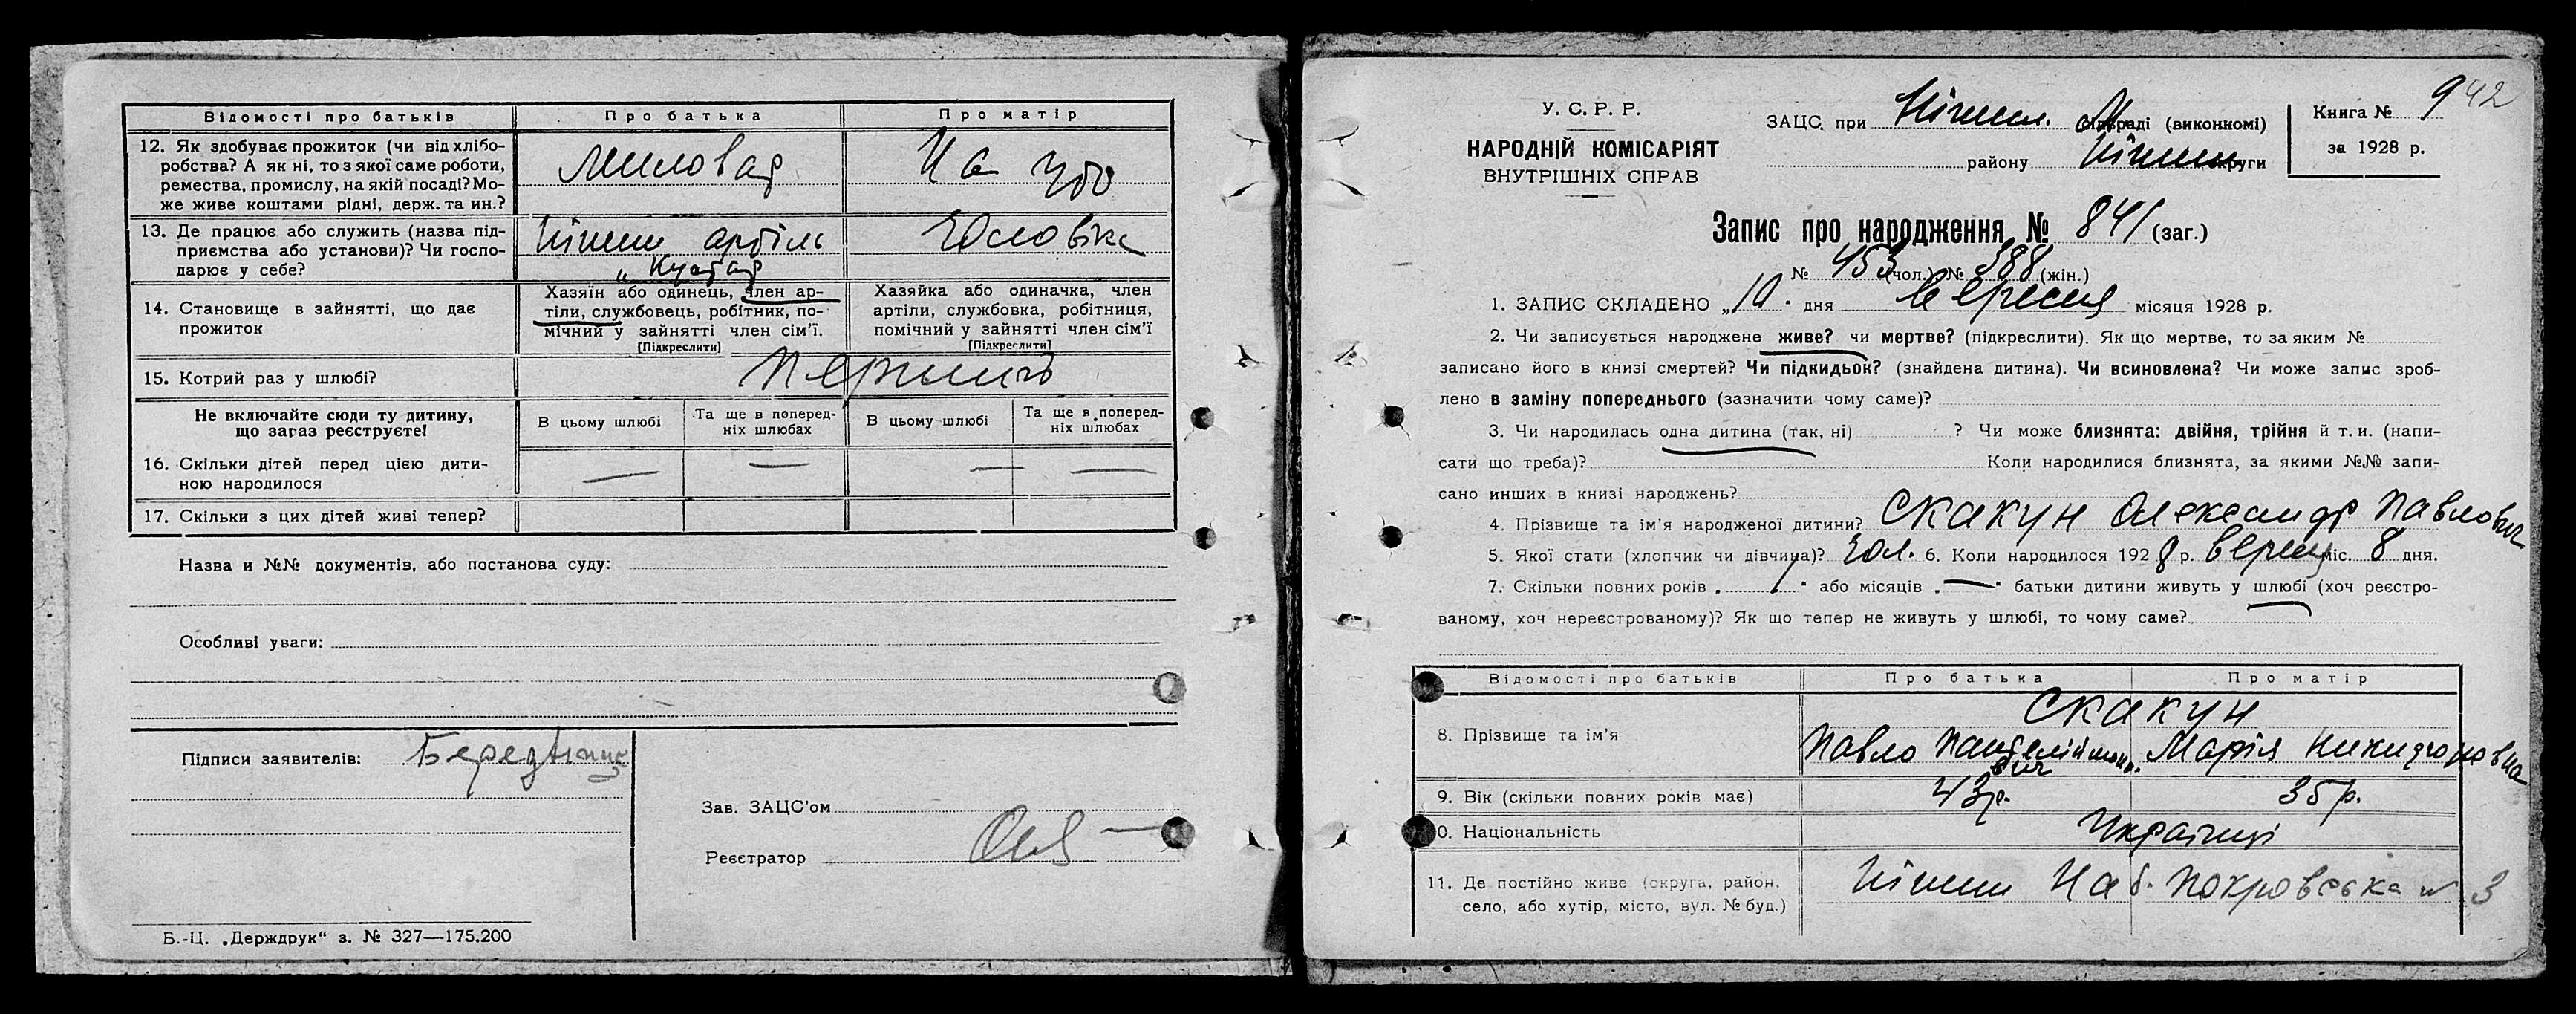 Відомості про батьків Про батька Про матір
12. Як здобуває прожиток (чи від хлібо-
робства? А як ні, то з якої саме роботи,
ремества, промислу, на якій посаді? Мо-
же живе коштами рідні, держ. та ин.?
Миловар На утр
13. Де працює або служить (назва під-
приємства або установи)? Чи госпо-
дарює у себе?
Ніжин артіль
„Кустар
Чоловіка
14. Становище в зайнятті, що дає
прожиток
Хазяїн або одинець, член ар-
тіли, службовець, робітник, по-
мічний у зайнятті член сім'ї.
[Підкреслити]
Хазяйка або одиначка, член
артіли, службовка, робітниця,
помічний у зайнятті член сім'ї
[Підкреслити]
15. Котрий раз у шлюбі?
Не включайте сюди ту дитину,
що зараз реєструєте!
В цьому шлюбі
Та ще в поперед-
ніх шлюбах
В цьому шлюбі
Та ще в поперед-
ніх шлюбах
16. Скільки дітей перед цією дити-
ною народилося
— — — —
17. Скільки з цих дітей живі тепер?
Назва и №№ документів, або постанова суду:
Особливі уваги:
Підписи заявителів:
Зав. ЗАЦС'ом
Реєстратор
Б.-Ц. „Держдрук" з. № 327—175.200
У. С. Р. Р.
НАРОДНІЙ КОМІСАРІЯТ
ВНУТРІШНІХ СПРАВ
ЗАЦС при Ніжин. М. (виконкомі)
району Ніжин округи
Книга № 9 42
за 1928 р.
Запис про народження № 841 (заг.)
№ 453 (чол.) № 388 (жін.)
1. ЗАПИС СКЛАДЕНО „10" дня Вересня місяця 1928 р.
2. Чи записується народжене живе? чи мертве? (підкреслити). Як що мертве, то за яким №
записано його в книзі смертей? Чи підкидьок? (знайдена дитина). Чи всиновлена? Чи може запис зроб-
лено в заміну попереднього (зазначити чому саме)?
3. Чи народилась одна дитина (так, ні) ? Чи може близнята: двійня, трійня й т. и. (напи-
сати що треба)? Коли народилися близнята, за якими №№ запи-
сано инших в книзі народжень?
4. Прізвище та ім'я народженої дитини? Скакун Олександр Павлович
5. Якої стати (хлопчик чи дівчина)? Чол. 6. Коли народилося 1928 р. Вересн міс. 8 дня.
7. Скільки повних років „ 1 " або місяців „ — " батьки дитини живуть у шлюбі (хоч реєстро-
ваному, хоч нереєстрованому)? Як що тепер не живуть у шлюбі, то чому саме?
Відомості про батьків Про батька Про матір
Скакун
8. Прізвище та ім'я Павло Пантеліймон. Марія Никифоровна
вич
9. Вік (скільки повних років має) 43 р. 35 р.
10. Національність Українці
11. Де постійно живе (округа, район,
село, або хутір, місто, вул. № буд.)
Ніжин Наб. Покровська № 3